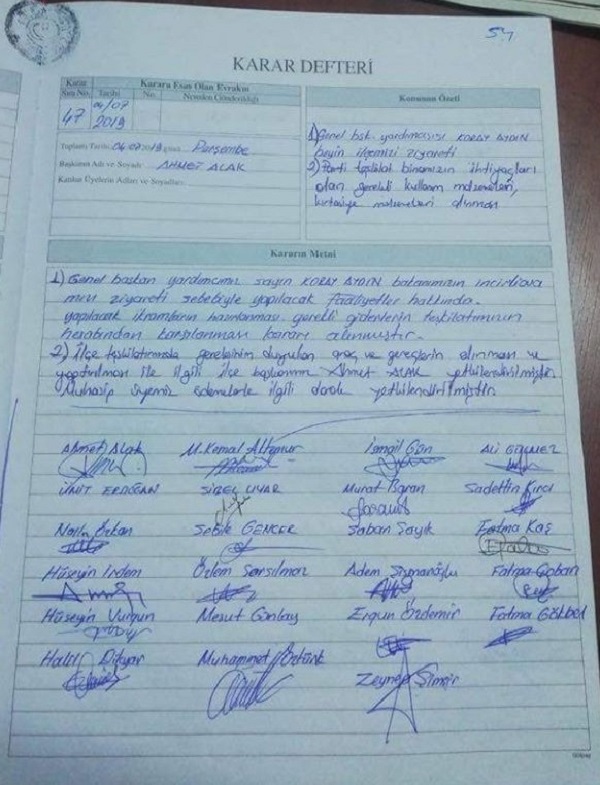 54
KARAR DEFTERİ
Karar
Sıra No.
Karara Esas Olan Evrakın
Tarihi
No.
Nereden Gönderildiği
47
04/07
2019
Toplantı Tarihi 04.07.2019 günü Perşembe
Başkanın Adı ve Soyadı: AHMET ALAK
Katılan Üyelerin Adları ve Soyadları:
Konunun Özeti
1) Genel bşk. yardımcısı KORAY AYDIN
beyin ilçemizi ziyareti
2) Parti teşkilat binamızın ihtiyaçları
olan gerekli kullanım malzemeleri,
kırtasiye malzemeleri alınması
Kararın Metni
1) Genel başkan yardımcımız sayın KORAY AYDIN bakanımızın incirliova
mızı ziyareti sebebiyle yapılacak faaliyetler hakkında.
yapılacak ikramların hazırlanması gerekli giderlerin teşkilatımızın
hesabından karşılanması kararı alınmıştır.
2) İlçe teşkilatımızda gereksinim duyulan araç ve gereçlerin alınması ve
yaptırılması ile ilgili ilçe başkanımız Ahmet ALAK yetkilendirilmiştir.
Muhasip üyemiz ödemelerle ilgili olarak yetkilendirilmiştir.
Ahmet Alak M.Kemal Altınpur İsmail Gön Ali GÖLMEZ
ÜMİT ERDOĞAN SİBEL UYAR Murat Başaran Sadettin Kırcı
Nail Özkan Sebile GENCER Şaban Sayık Fatma Kaş
Hüseyin İrdem Özlem Sarsılmaz Adem Şişmanoğlu Fatma Çoban
Hüseyin Vurgun Mesut Günbay Ergun Özdemir Fatma GÖKBEL
Halil Dilyar Muhammet Öztürk Zeynep Şimşir